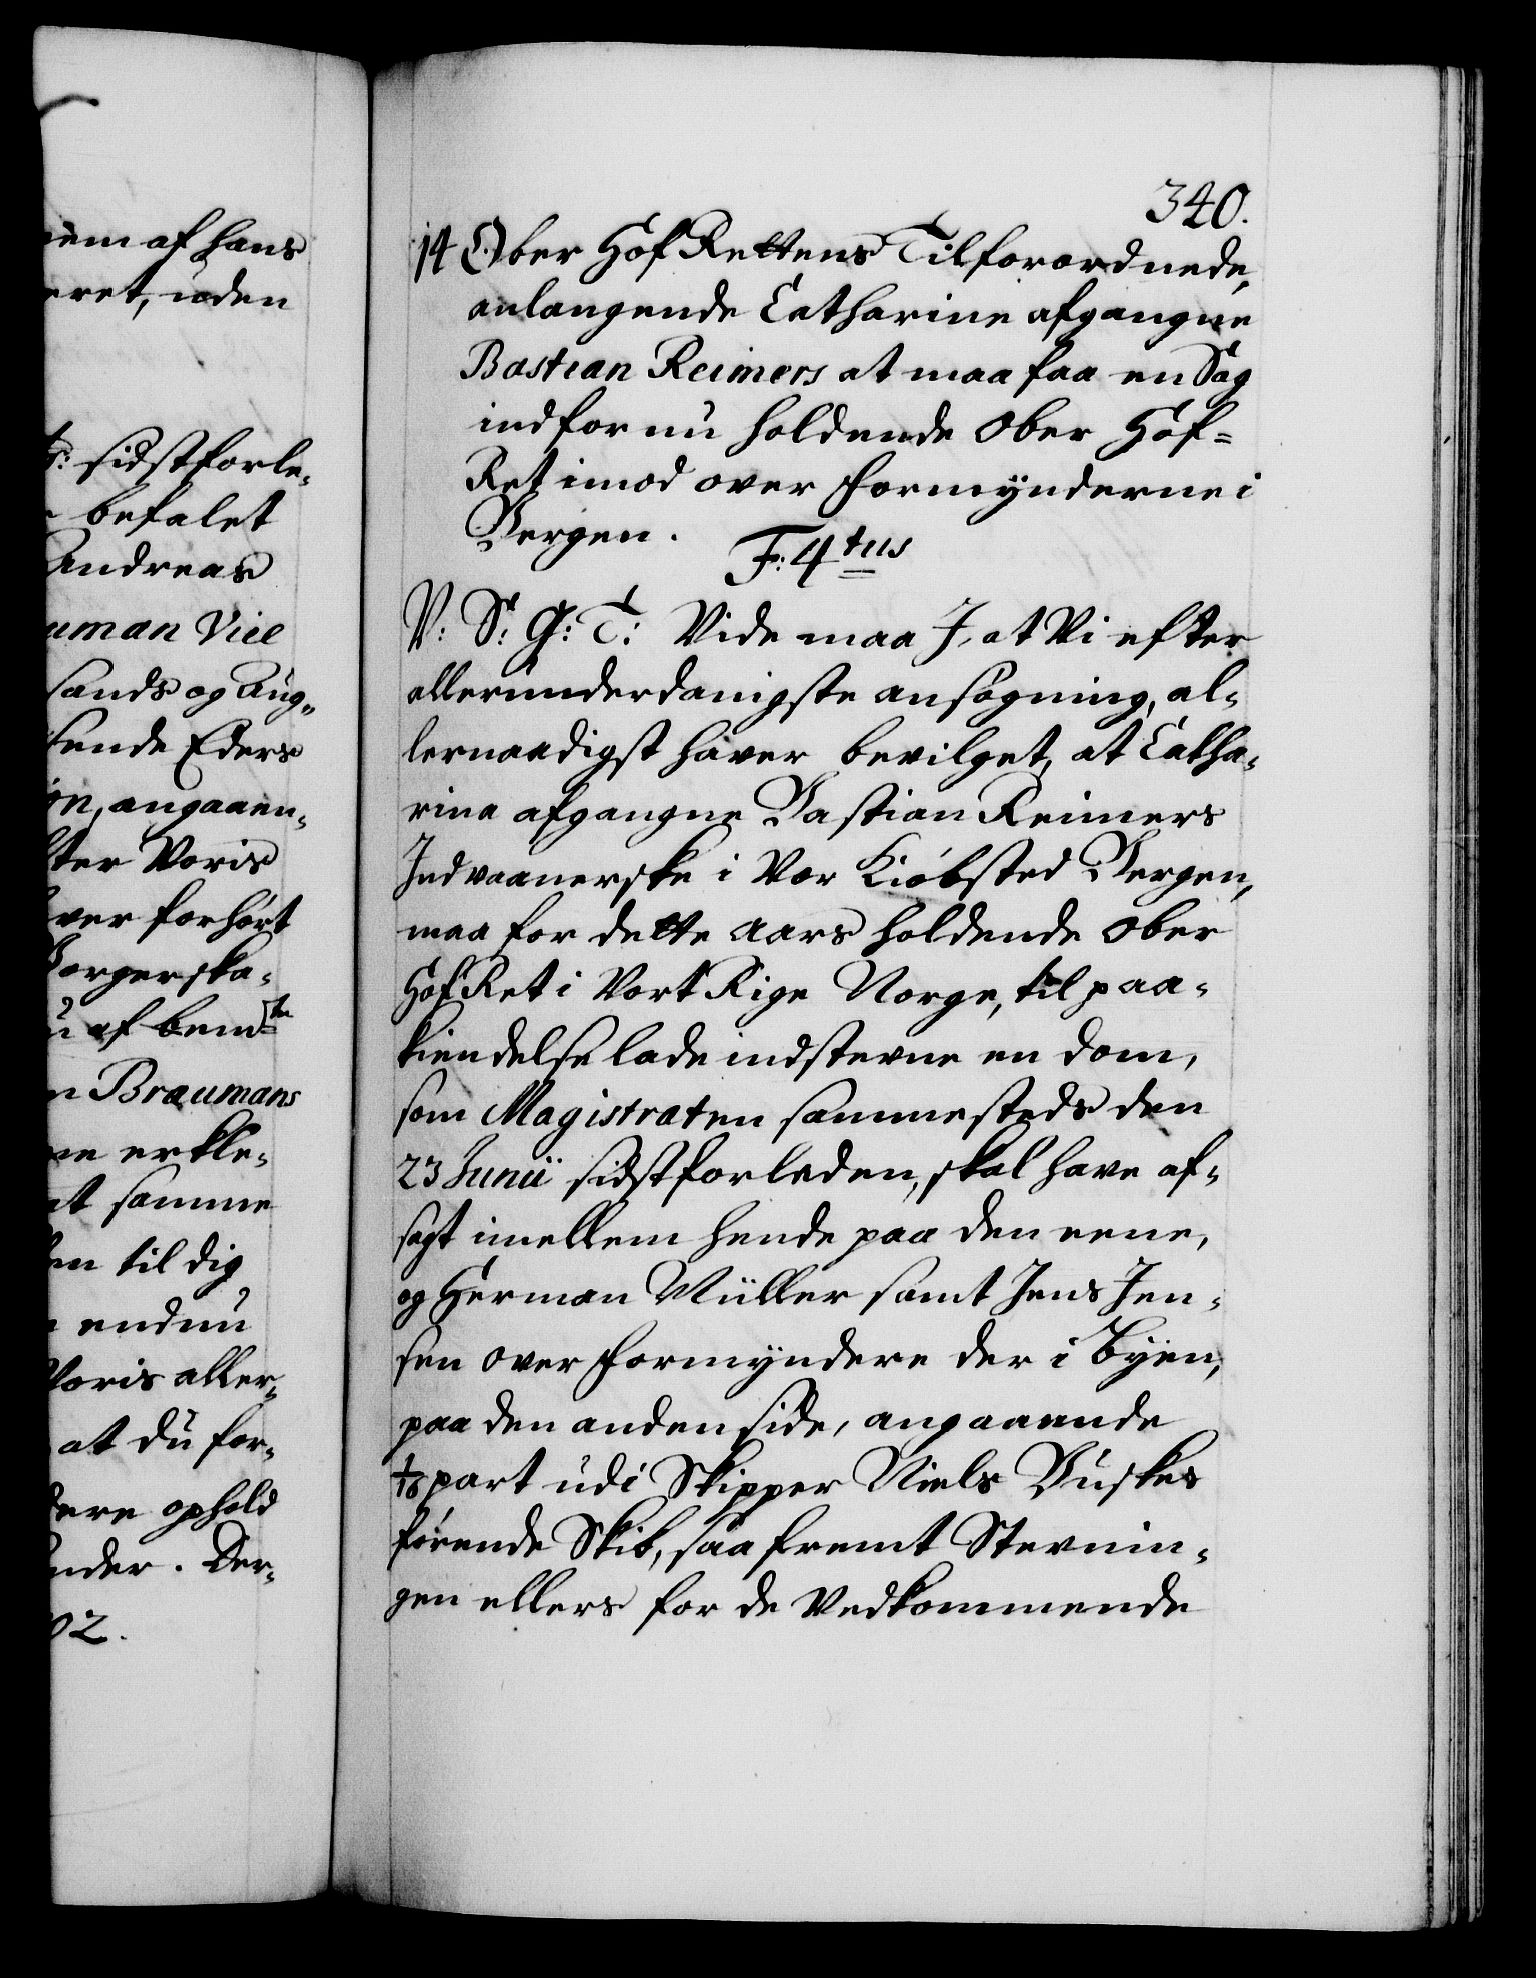 ium af Hans
eret, uden
t: sidstforle-
befalet
Andreas
uman Vice
sands og Aug-
sende Eders
on, angaaen-
ter Voris
ver forhört
Borgerska-
u af bem.te
n Braumans
ne erkle-
at samme
en til dig
endnu
Voris aller-
at du for-
dere ophold
under. Der-
02.
340.
14 Ober Hof Rettens Tilforordnede,
anlangende Catharine afgangne
Bastian Reimers at maa faa en Sag
ind for nu holdende Ober Hof-
Ret imod over formynderne i
Bergen.
F: 4tus
V: S: G: T: Vide maa J, at Vi efter
allerunderdanigste ansögning, al-
lernaadigst haver bevilget, at Catha-
rina afgangne Bastian Reimers
Indvaanerske i Vor Kiöbsted Bergen,
maa for dette aars holdende Ober
Hof Ret i Vort Rige Norge, til paa-
kiendelse lade indstevne en dom,
som Magistraten sammesteds den
23 Junii sidstforleden, skal have af-
sagt imellem hende paa den eene,
og Herman Müller samt Jens Jen-
sen over formyndere der i Byen,
paa den anden side, angaaende
1/8 part udi Skipper Niels Buskes
förende Skib, saafremt Stevnin-
gen ellers for de Vedkommende